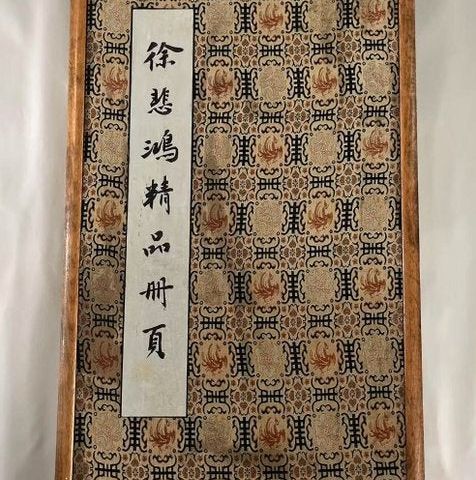 徐悲鴻精品冊頁